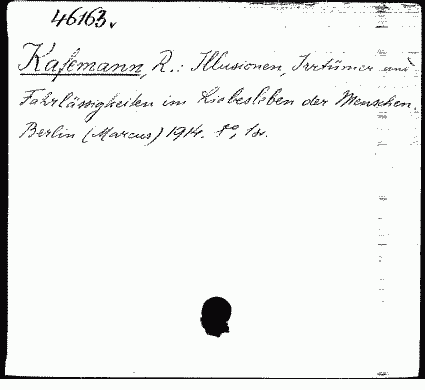 46163.
Kafemann, R.: Illusionen, Irrtümer und
Fahrlässigkeiten im Liebesleben der Menschen.
Berlin (Marcus) 1914. 8°,